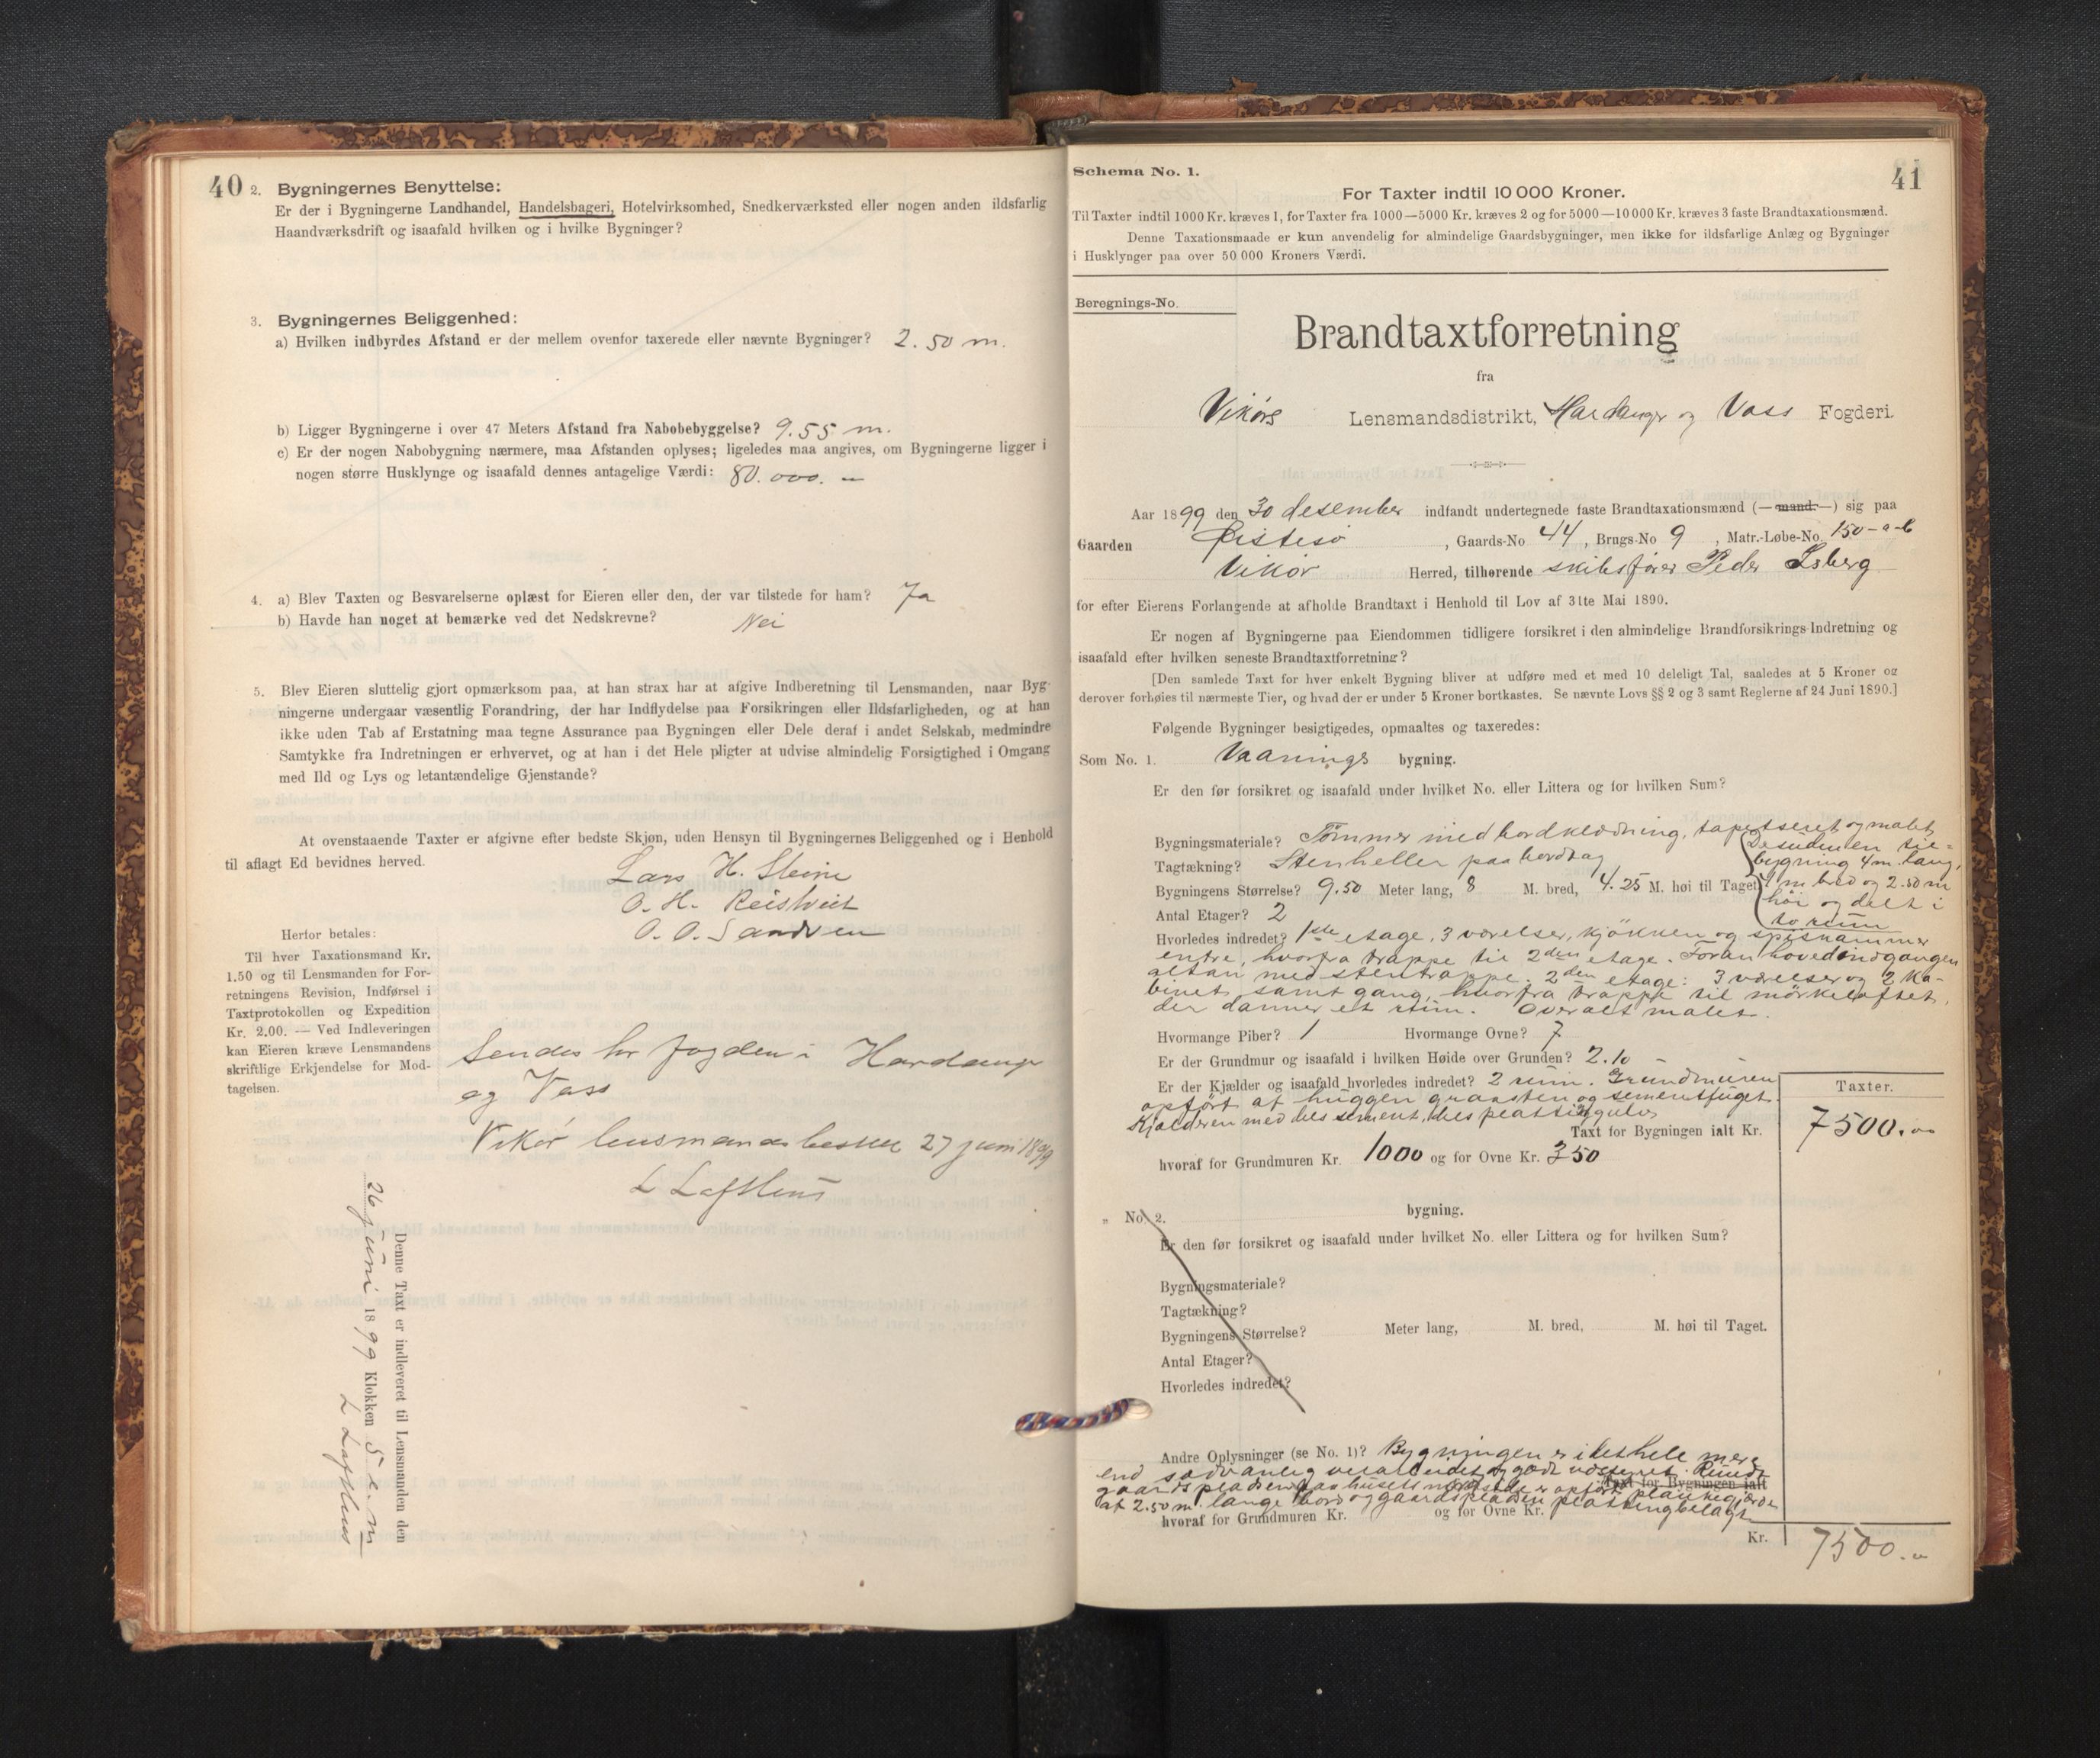 40
2. Bygningernes Benyttelse:
Er der i Bygningerne Landhandel, Handelsbageri, Hotelvirksomhed, Snedkerværksted eller nogen anden ildsfarlig
Haandværksdrift og isaafald hvilken og i hvilke Bygninger?
3. Bygningernes Beliggenhed:
a) Hvilken indbyrdes Afstand er der mellem ovenfor taxerede eller nævnte Bygninger? 2.50 m.
b) Ligger Bygningerne i over 47 Meters Afstand fra Nabobebyggelse? 9.55 m.
c) Er der nogen Nabobygning nærmere, maa Afstanden oplyses; ligeledes maa angives, om Bygningerne ligger i
nogen større Husklynge og isaafald dennes antagelige Værdi: 80.000.
4. a) Blev Taxten og Besvarelserne oplæst for Eieren eller den, der var tilstede for ham? Ja
b) Havde han noget at bemærke ved det Nedskrevne? Nei
5. Blev Eieren sluttelig gjort opmærksom paa, at han strax har at afgive Indberetning til Lensmanden, naar Byg-
ningerne undergaar væsentlig Forandring, der har Indflydelse paa Forsikringen eller Ildsfarligheden, og at han
ikke uden Tab af Erstatning maa tegne Assurance paa Bygningen eller Dele deraf i andet Selskab, medmindre
Samtykke fra Indretningen er erhvervet, og at han i det Hele pligter at udvise almindelig Forsigtighed i Omgang
med Ild og Lys og letantændelige Gjenstande?
At ovenstaaende Taxter er afgivne efter bedste Skjøn, uden Hensyn til Bygningernes Beliggenhed og i Henhold
til aflagt Ed bevidnes herved.
Lars H. Steine
O. H. Reistveit
O. O. Sandven
Herfor betales:
Til hver Taxationsmand Kr.
1.50 og til Lensmanden for For-
retningens Revision, Indførsel i
Taxtprotokollen og Expedition
Kr. 2.00. — Ved Indleveringen
kan Eieren kræve Lensmandens
skriftlige Erkjendelse for Mod-
tagelsen.
Sendes hr fogden i Hardanger
og Voss
Vikør lensmandsbestil 27 juni 1899
L Lofthus
Denne Taxt er indleveret til Lensmanden den
26 juni 1899 Klokken 5 e.m
L Lofthus
41
Schema No. 1.
For Taxter indtil 10 000 Kroner.
Til Taxter indtil 1000 Kr. kræves 1, for Taxter fra 1000—5000 Kr. kræves 2 og for 5000—10 000 Kr. kræves 3 faste Brandtaxationsmænd.
Denne Taxationsmaade er kun anvendelig for almindelige Gaardsbygninger, men ikke for ildsfarlige Anlæg og Bygninger
i Husklynger paa over 50 000 Kroners Værdi.
Beregnings-No.
Brandtaxtforretning
fra
Vikørs Lensmandsdistrikt, Hardanger og Voss Fogderi.
Aar 1899 den 30 desember indfandt undertegnede faste Brandtaxationsmænd (—mand—) sig paa
Gaarden Østesø, Gaards-No 44, Brugs-No 9, Matr.-Løbe-No. 150-a-b
Vikør Herred, tilhørende skibsfører Peder Isberg
for efter Eierens Forlangende at afholde Brandtaxt i Henhold til Lov af 31te Mai 1890.
Er nogen af Bygningerne paa Eiendommen tidligere forsikret i den almindelige Brandforsikrings-Indretning og
isaafald efter hvilken seneste Brandtaxtforretning?
[Den samlede Taxt for hver enkelt Bygning bliver at udføre med et med 10 deleligt Tal, saaledes at 5 Kroner og
derover forhøies til nærmeste Tier, og hvad der er under 5 Kroner bortkastes. Se nævnte Lovs §§ 2 og 3 samt Reglerne af 24 Juni 1890.]
Følgende Bygninger besigtigedes, opmaaltes og taxeredes:
Som No. 1. Vaanings bygning.
Er den før forsikret og isaafald under hvilket No. eller Littera og for hvilken Sum?
Bygningsmateriale? Tømmer med bordklædning, tapetseret og malet
Tagtækning? Stenheller paa bordtag
Desuden en til-
bygning 4 m. lang,
1 m bred og 2.50 m
høi og delt i
to rum
Bygningens Størrelse? 9.50 Meter lang, 8 M. bred, 4.25 M. høi til Taget
Antal Etager? 2
Hvorledes indredet? 1ste etage, 3 værelser, kjøkken og spiskammer
entre, hvorfra trappe til 2den etage. Foran hovedindgangen
altan med stentrappe. 2den etage: 3 værelser og 2 ka-
binet samt gang, hvorfra trappe til mørkeloftet,
der danner et rum. Overalt malet.
Hvormange Piber? 1 Hvormange Ovne? 7
Er der Grundmur og isaafald i hvilken Høide over Grunden? 2.10
Er der Kjælder og isaafald hvorledes indredet? 2 rum. Grundmuren
opført af huggen graasten og sementfuget.
Kjælderen med dels sement, dels plattinggulv
Taxter.
Taxt for Bygningen ialt Kr. 7500.00
hvoraf for Grundmuren Kr. 1000 og for Ovne Kr. 350
„ No. 2. bygning.
Er den før forsikret og isaafald under hvilket No. eller Littera og for hvilken Sum?
Bygningsmateriale?
Tagtækning?
Bygningens Størrelse? Meter lang, M. bred, M. høi til Taget.
Antal Etager?
Hvorledes indredet?
Andre Oplysninger (se No. 1)? Bygningen er i det hele mere
end sædvanlig vel arbeidet og godt udstyret. Rundt
gaardspladsen paa husets nordside er opført plankegjærde
Taxt for Bygningen ialt
af 2.50 m. lange bord og gaardspladsen plattingbelagt
hvoraf for Grundmuren Kr. og for Ovne Kr.
Kr. 7500.